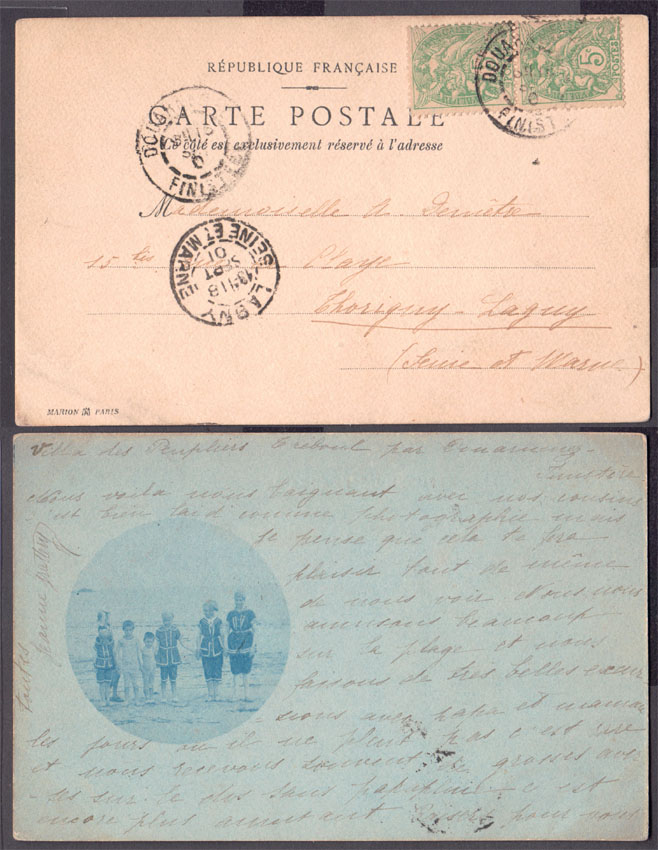 RÉPUBLIQUE FRANÇAISE
CARTE POSTALE
Ce côté est exclusivement réservé à l'adresse
5
POSTES
DOUA
FINIST
DOUA
FINISTÈRE
LAGNY
SEINE ET MARNE
SEPT
01
Mademoiselle
15
Claye
Thorigny-Lagny
(Seine et Marne)
MARION PARIS
Villa des Peupliers Treboul par Douarnenez
Finistère
Nous voila nous baignant avec nos cousins
c'est bien laid comme photographie mais
je pense que cela te fra
plaisir tout de même
de nous voir. Nous nous
amusons beaucoup
sur la plage et nous
faisons de très belles excur
sions avec papa et maman
les jours ou il ne pleut pas c'est rare
et nous recevons souvent de grosses aver
ses sur le dos sans parapluie c'est
encore plus amusant. pour vous
toutes
Jeanne